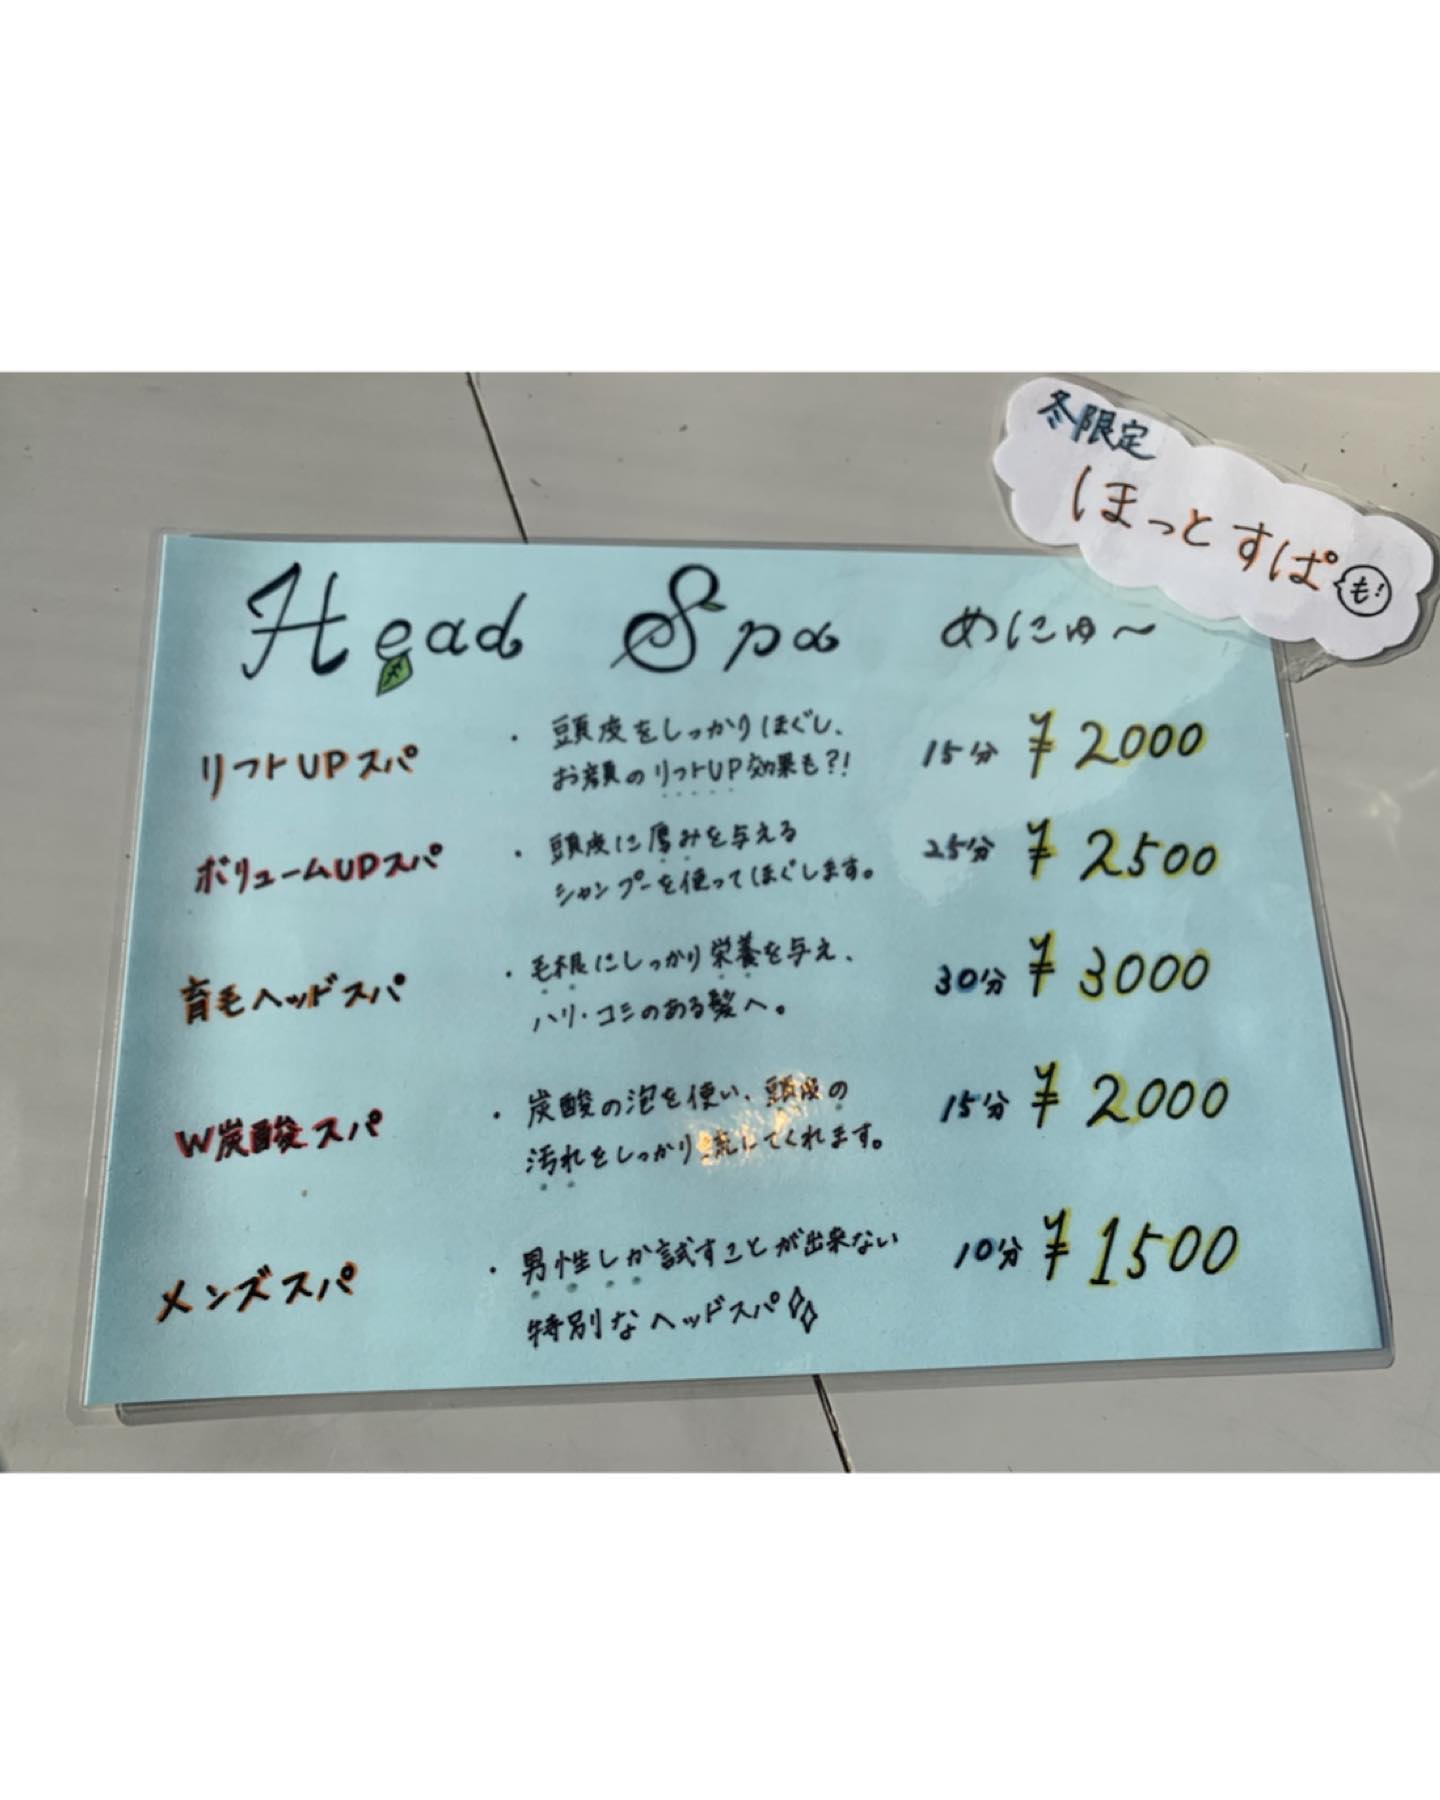 冬限定
ほっとすぱ も!
Head Spa めにゅ〜
リフトUPスパ ・頭皮をしっかりほぐし、 15分 ¥2000
お顔のリフトUP効果も?!
ボリュームUPスパ ・頭皮に厚みを与える 25分 ¥2500
シャンプーを使ってほぐします。
育毛ヘッドスパ ・毛根にしっかり栄養を与え、 30分 ¥3000
ハリ・コシのある髪へ。
W炭酸スパ ・炭酸の泡を使い、頭皮の 15分 ¥2000
汚れをしっかり流してくれます。
メンズスパ ・男性しか試すことが出来ない 10分 ¥1500
特別なヘッドスパ